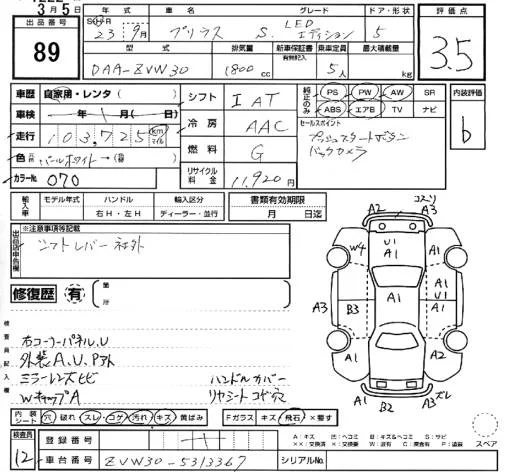 3月5日
出品番号
89
年式
車名
グレード
ドア・形状
23 9月 プリウス S. LEDエディション 5
評価点
3.5
型式
排気量
新車保証書
有無記入
乗車定員
最大積載量
DAA-ZVW30 1800cc 5人 kg
車歴 自家用・レンタ( )
シフト IAT
純正のみ
PS PW AW SR
ABS エアB TV ナビ
内装評価
b
車検 年 月( 日)
冷房 AAC
セールスポイント
プッシュスタートボタン
バックカメラ
走行 103,725 km マイル
燃料 G
色 パールホワイト→
カラーNo. 070
リサイクル料金 11,920円
輸入車
モデル年式
ハンドル
右H・左H
輸入区分
ディーラー・並行
書類有効期限
月 日迄
※注意事項等記載
出品店申告欄
シフトレバー社外
修復歴 有
箇所
検査員記入欄
右コーナーパネルU
外装A、U、P跡
ミラーレンズヒビ
WキャップA
ハンドルカバー
リヤシートコゲ穴
コスリ
A2 A3
W4 U1 A1 A1
A3 B3 A1 A1 U1 A3
A1 A1 A2
A1 B2 A3 ズレ
内装シート 穴 破れ スレ・コゲ 汚れ キズ 黄ばみ
Fガラス キズ 飛石 × 要す
スペア
検査員
12
登録番号
車台番号 ZVW30-5313367
シリアルNo.
A：キズ B：キズ&ヘコミ S：サビ
××：交換済 ×：交換要 W：波有 C：腐食 P：塗装